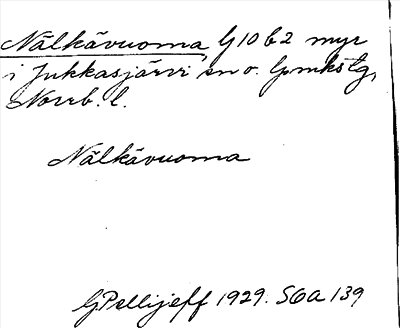 Nälkävuoma, G10b2 myr
i Jukkasjärvi sn o. lpmkstg,
Norrb. l.
Nälkävuoma
G Pellijeff 1929. SOA 139